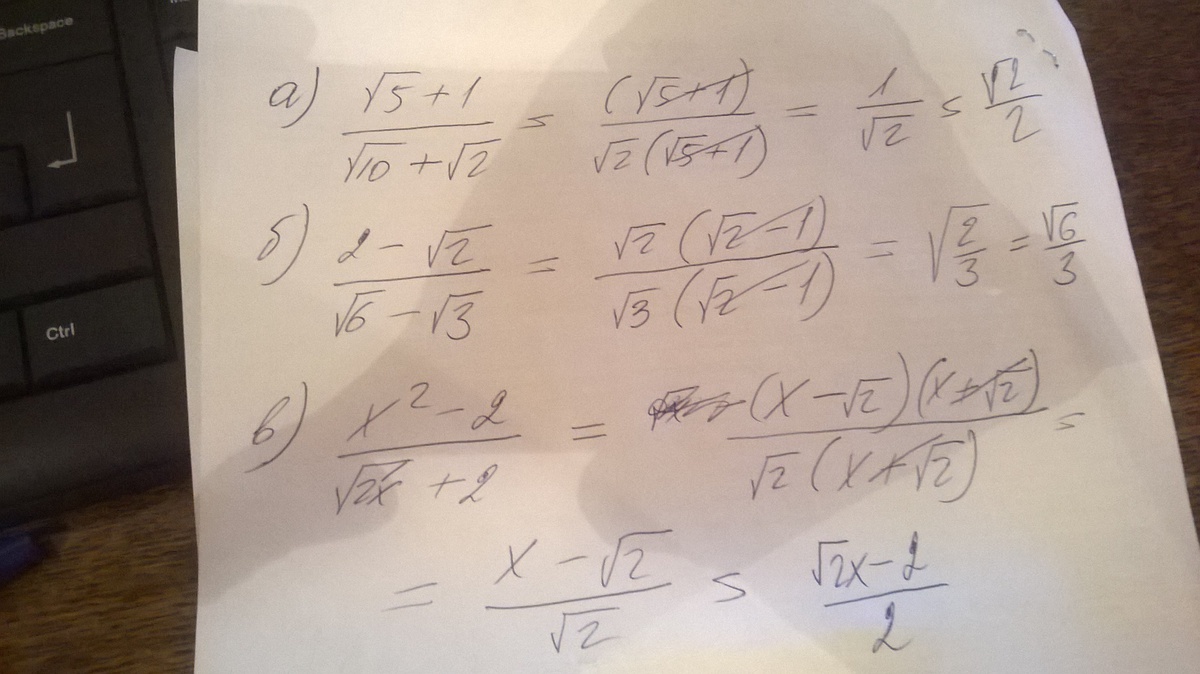 Backspace
Ctrl
а) (√5 + 1)/(√10 + √2) = (√5+1)/(√2(√5+1)) = 1/√2 = √2/2
б) (2 - √2)/(√6 - √3) = √2(√2-1)/(√3(√2-1)) = √(2/3) = √6/3
в) (x² - 2)/(√2x + 2) = (x - √2)(x+√2)/(√2(x+√2)) =
= (x - √2)/√2 = (√2x - 2)/2